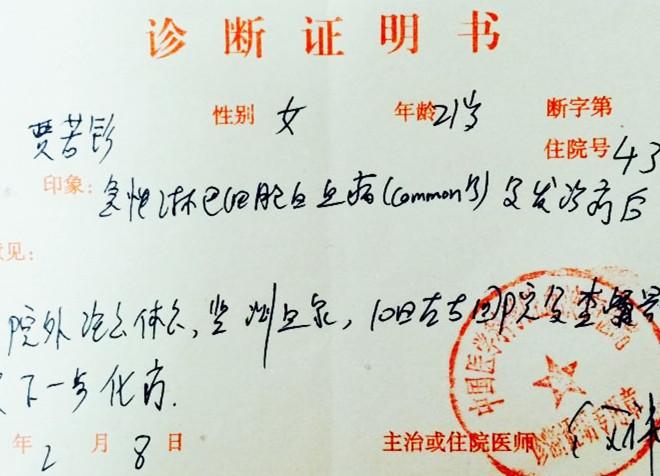 诊断证明书
贾若 性别 女 年龄 21岁 断字第
住院号 43
印象: 急性淋巴细胞白血病(Common型)复发治疗后
意见:
院外 休息, 监测血象, 10日左右回院复查
下一步化疗.
年 2 月 8 日 主治或住院医师
中国医学